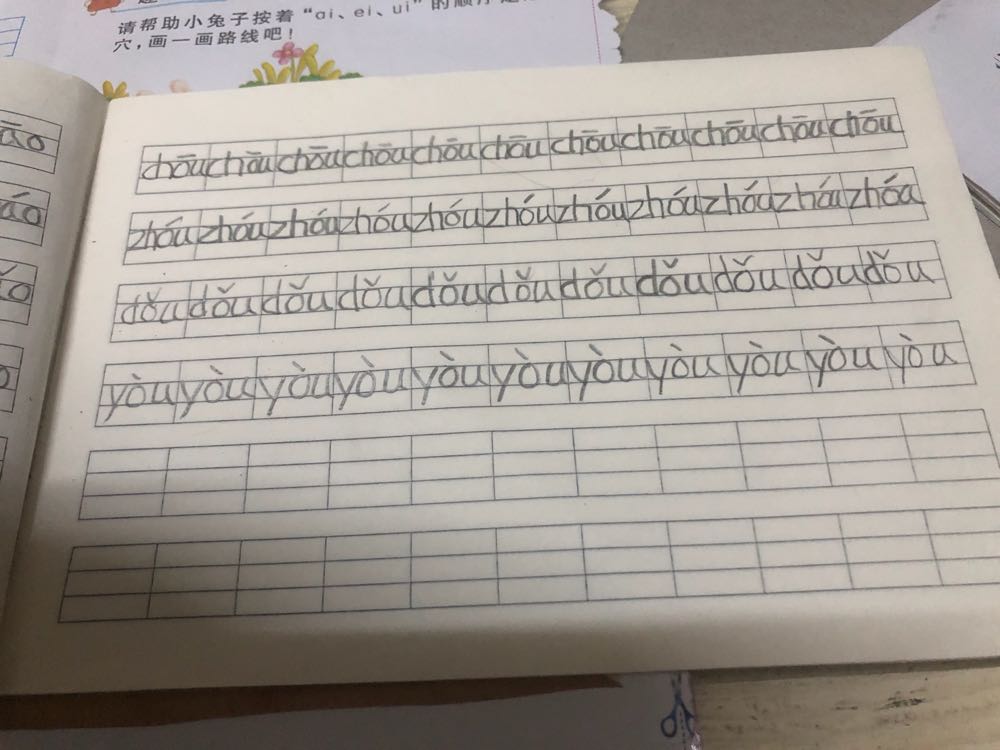 请帮助小兔子按着“ai、ei、ui”的顺序
穴，画一画路线吧！
āo
áo
ǎo
chōu chōu chōu chōu chōu chōu chōu chōu chōu chōu chōu
zhóu zhóu zhóu zhóu zhóu zhóu zhóu zhóu zhóu zhóu zhóu
dǒu dǒu dǒu dǒu dǒu dǒu dǒu dǒu dǒu dǒu dǒu
yòu yòu yòu yòu yòu yòu yòu yòu yòu yòu yòu